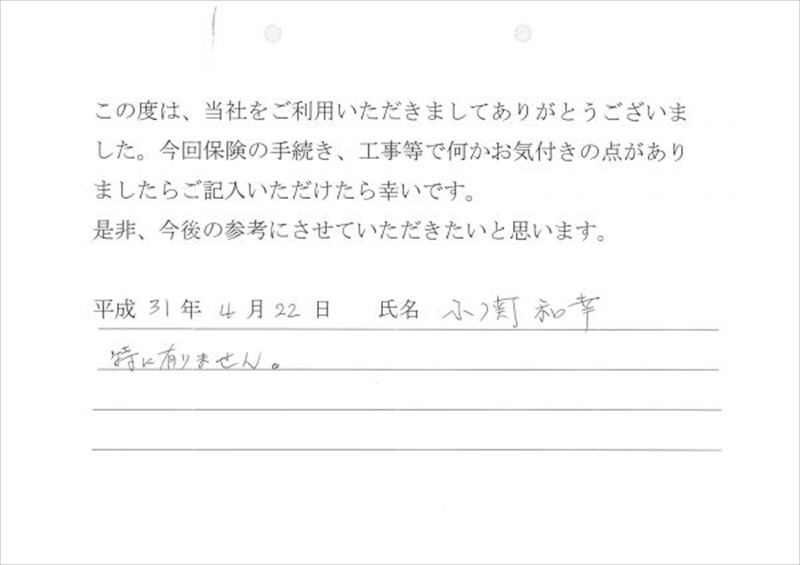 この度は、当社をご利用いただきましてありがとうございま
した。今回保険の手続き、工事等で何かお気付きの点があり
ましたらご記入いただけたら幸いです。
是非、今後の参考にさせていただきたいと思います。
平成 31 年 4 月 22 日 氏名 和幸
特に有りません。